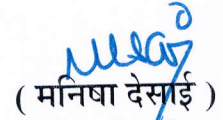 ( मनिषा देसाई )